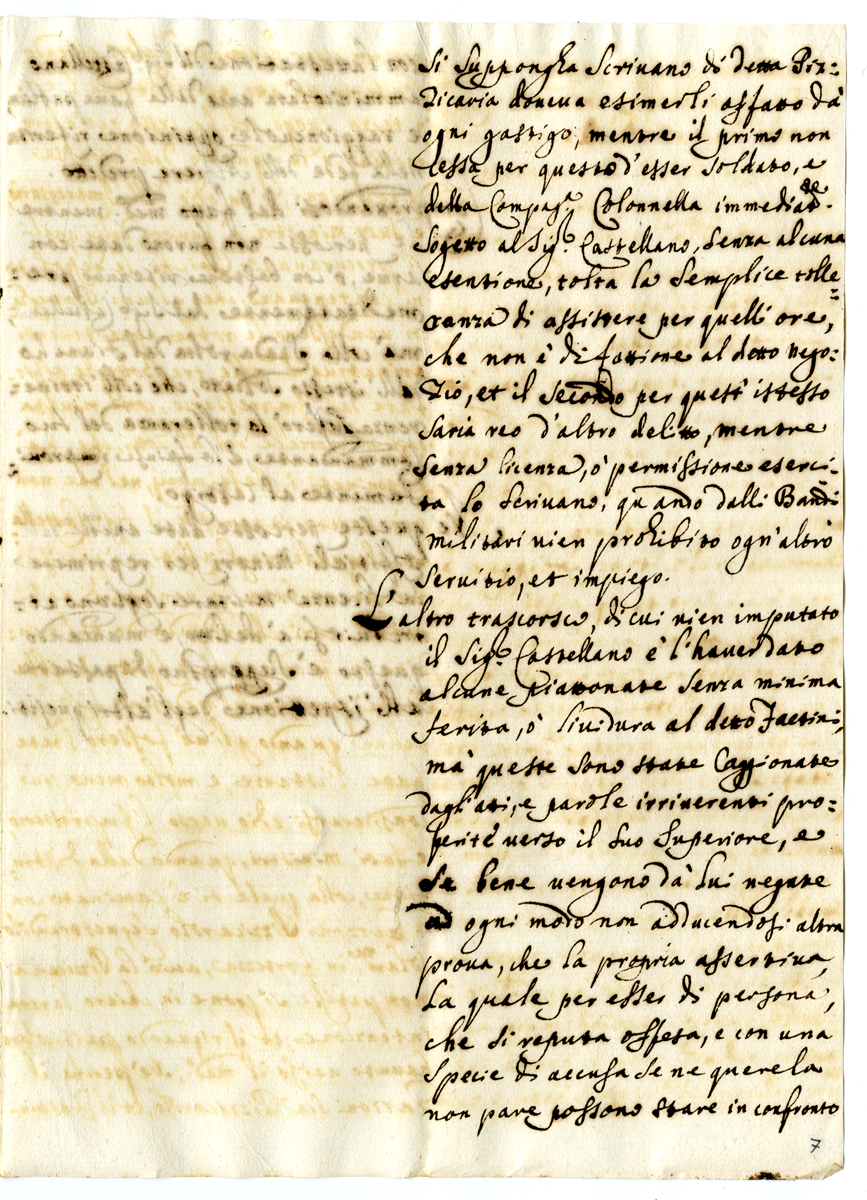 si supponghа Scrivano di detta Piz=
zicaria doveva esimerli affatto da
ogni gastigo, mentre il primo non
cessa per questo d'esser soldato, e
della Compag.ª Colonnella immediat.te
sogetto al Sig.r Castellano, senza alcuna
esentione, tolta la semplice tolle=
ranza di assistere per quelli ore,
che non è di fattione al detto nego=
zio, et il secondo per quest'istesso
saria reo d'altro delitto, mentre
senza licenza, ò permissione eserci=
ta lo scrivano, quando dalli Bandi
militari vien prohibito ogn'altro
servitio, et impiego.
L'altro trascorso, di cui vien imputato
il Sig.r Castellano è l'haver dato
alcune piattonate senza minima
ferita, ò lividura al detto Fattini,
mà queste sono state Caggionate
dagl'atti, e parole irriverenti pro=
ferite verso il suo Superiore, e
se bene vengono dà lui negate
ad ogni modo non adducendosi altra
prova, che la propria assertiva,
la quale per esser di persona,
che si reputa offesa, e con una
specie di accusa se ne querela
non pare possono stare in confronto
7